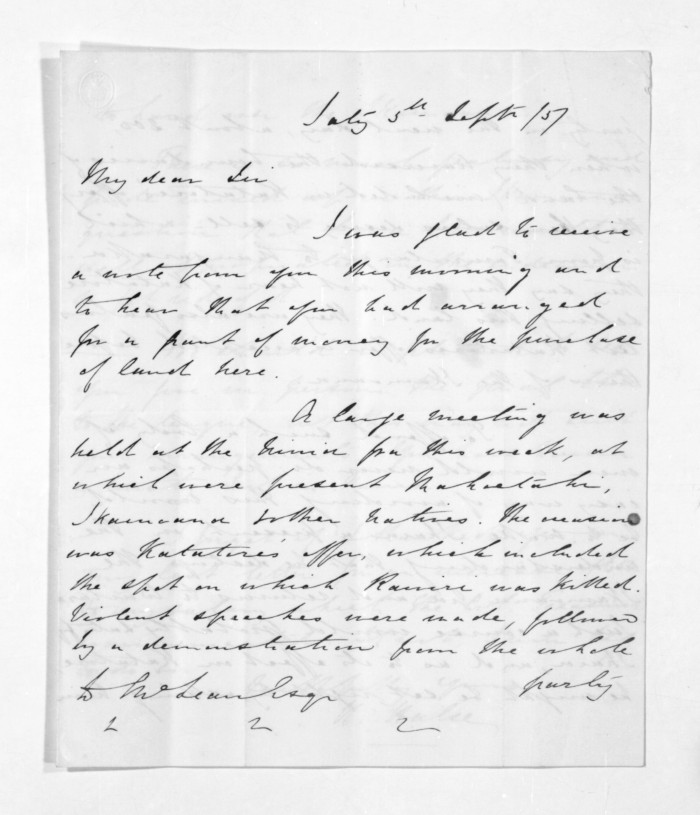 5th Septr /57
My dear Sir
I was glad to receive
a note from you this morning and
to hear that you had arranged
for a grant of money for the purchase
of land here.
A large meeting was
held at the Ninia pa this week, at
which were present Mahoetahi,
Ikamoana & other Natives. The occasion
was Katatore's offer, which included
the spot on which Rawiri was killed.
Violent speeches were made, followed
by a demonstration from the whole
party
D McLean Esqr